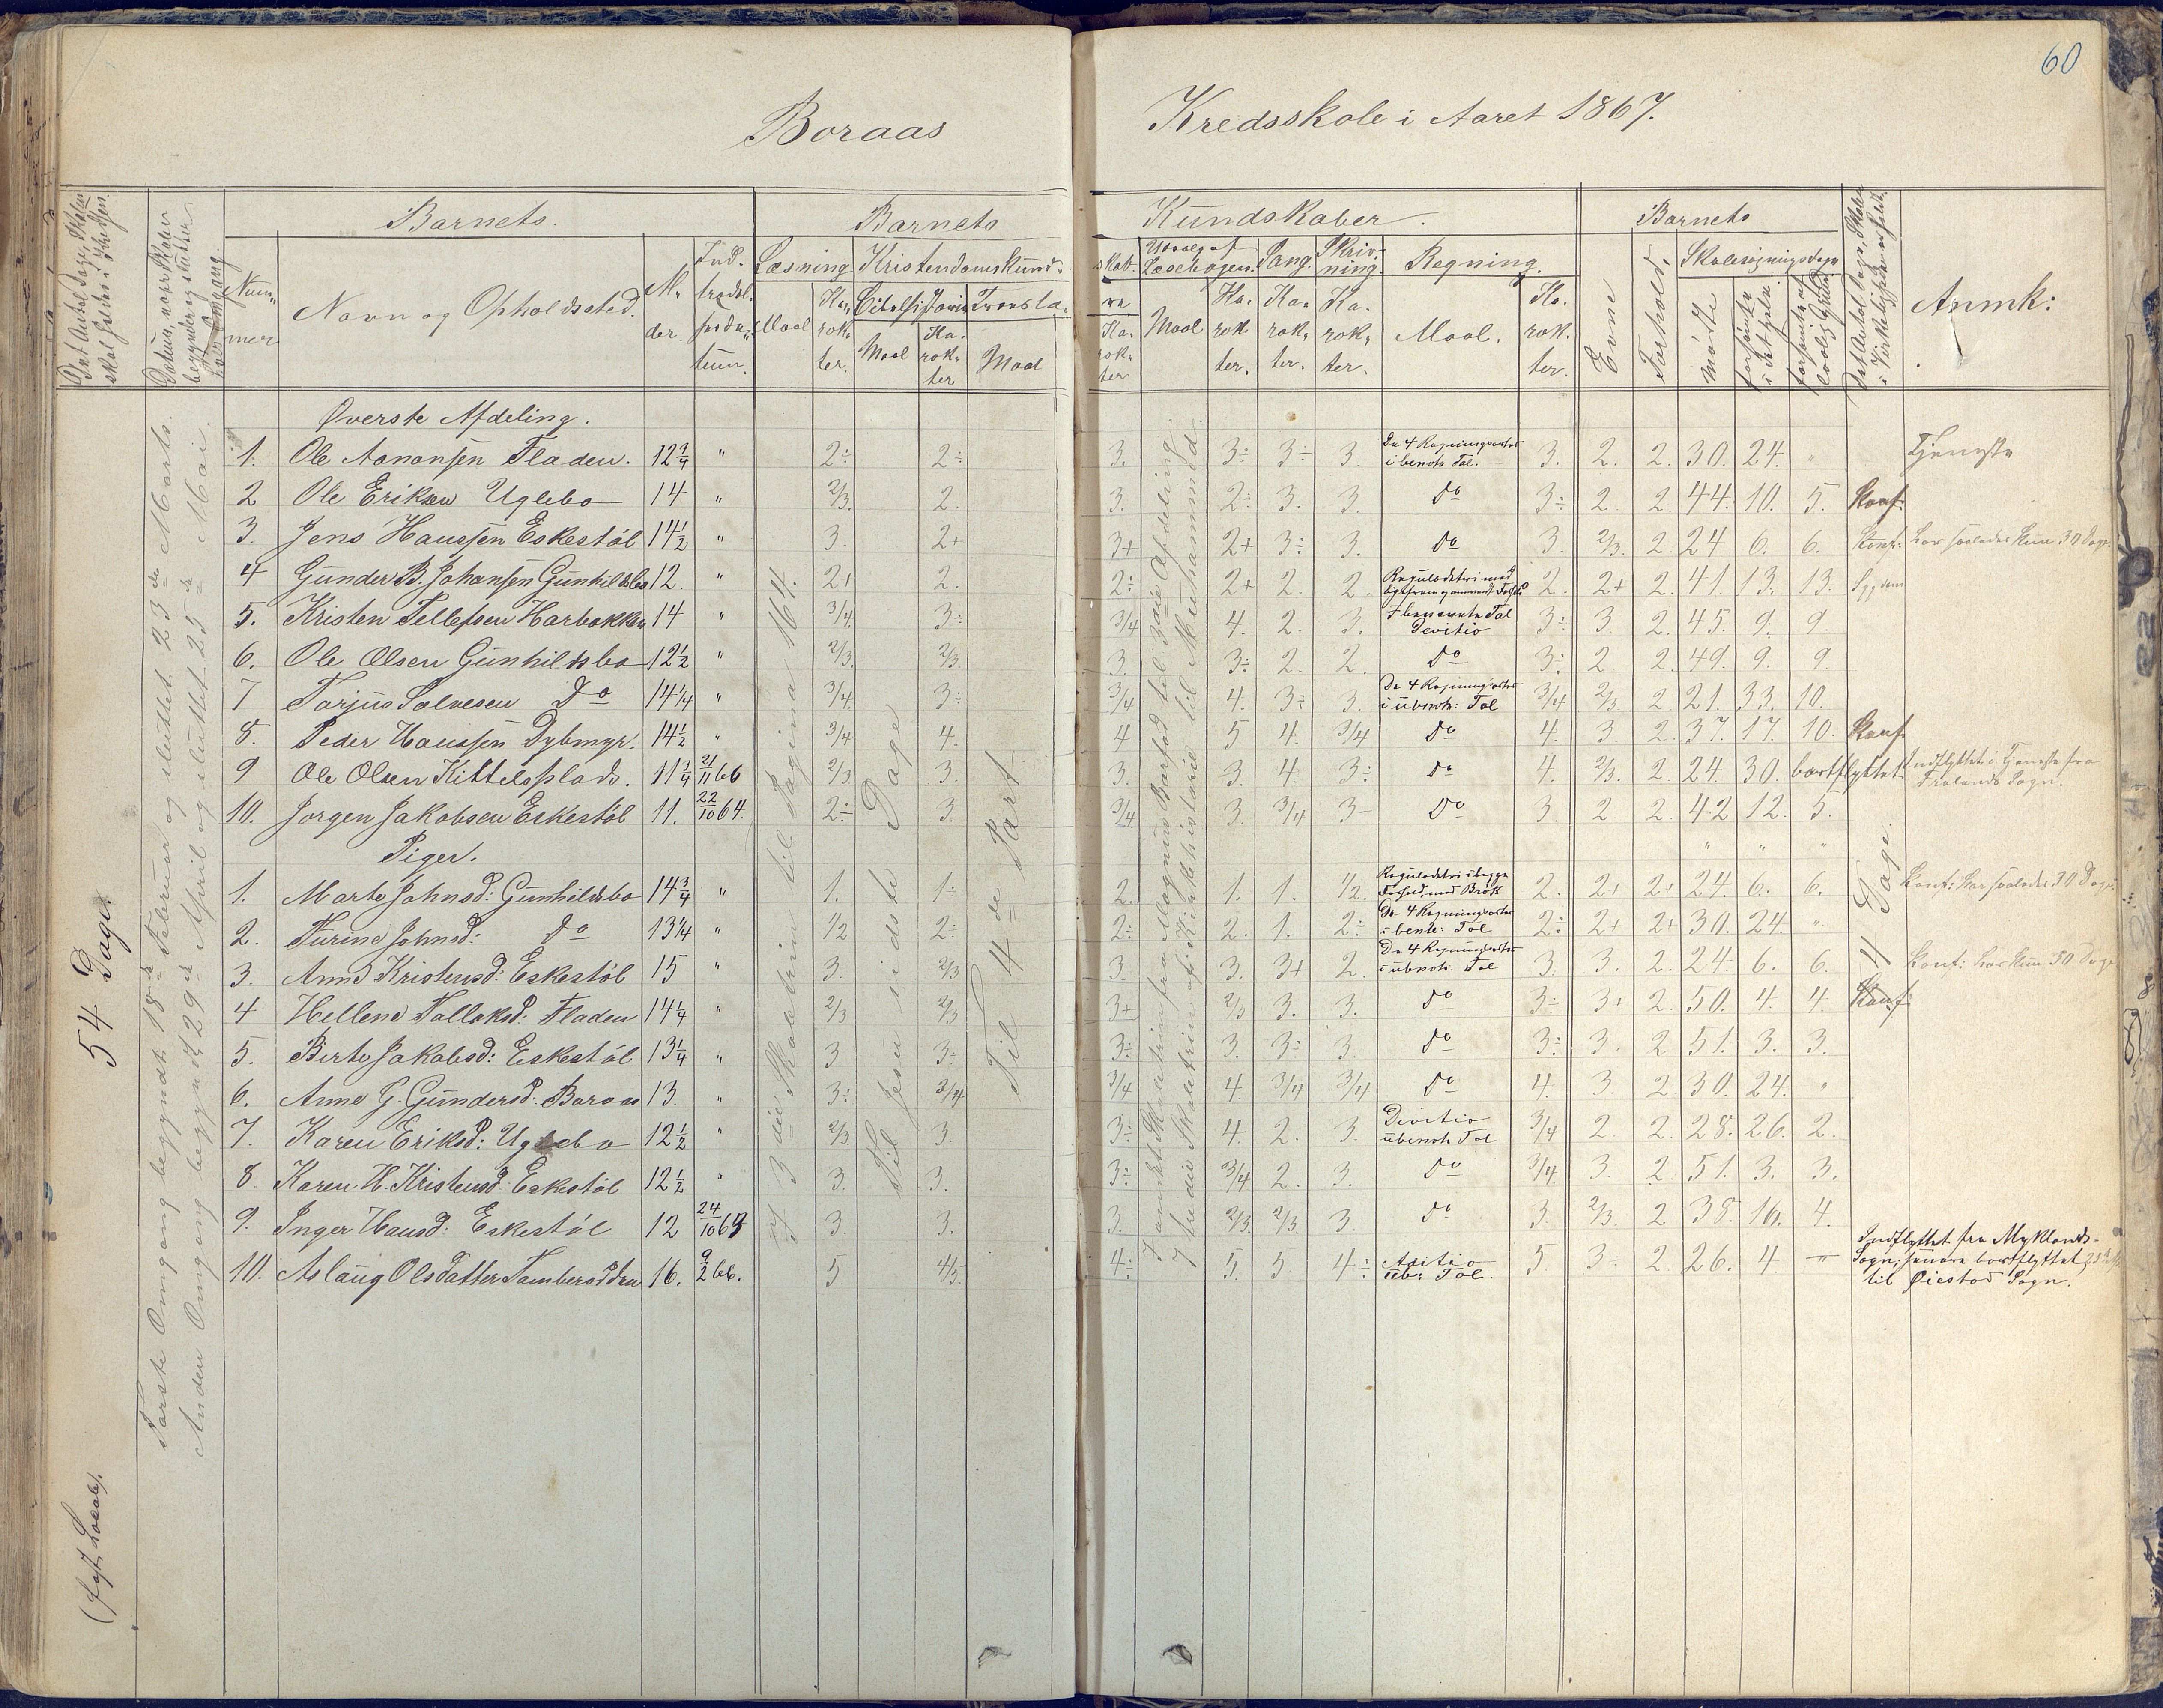 60
Boraas Kredsskole i Aaret 1867.
Det Antal Dage, Skolen skal holdes i Kredsen.
Datum, naar Skolen begynder og slutter hver Omgang.
Barnets
Barnets Kundskaber.
Barnets
Num-mer
Navn og Opholdssted.
Al-der.
Ind-trædel-sesda-tum.
Læsning
Kristendomskund-skab.
Udvalg af Læsebogen.
Sang.
Skriv-ning.
Regning.
Evne
Forhold.
Skolesøgningsdage
Anmk:
Maal
Ka-rak-ter.
Bibelhistorie
Maal
Ka-rak-ter
Troeslæ-re
Maal
Ka-rak-ter
Maal
Ka-rak-ter.
Ka-rak-ter.
Ka-rak-ter.
Maal.
Ka-rak-ter.
mødte
forsømte i det hele
forsømte af lovlig Grund
Det Antal Dage, Skolen i Virkeligheden er holdt.
54 Dage.
(fast Locale).
Første Omgang begyndt 18de Februar og sluttet 23de Marts.
Anden Omgang begyndt 29de April og sluttet 25de Mai.
I 3die Skoletrin til Pagina 164.
Til Jesu sidste Dage
Til 4de Part
Øverste Afdeling.
1. Ole Aanonsen Fladen. 12 3/4 " 2÷ 2÷ 3. 3÷ 3÷ 3. De 4 Regningsarter i benevnte Tal. 3. 2. 2. 30. 24. " Tjeneste
2 Ole Eriksen Uglebo 14 " 2/3. 2. 3. 2÷ 3. 3. Do 3÷ 2. 2. 44. 10. 5. Konf:
3. Jens Hanssen Eskestøl 14 1/2 " 3. 2+ 3+ 2+ 3÷ 3. Do 3. 2/3. 2. 24 6. 6. Konf:
4 Gunder B. Johansen Gunhildsbo 12. " 2+ 2. 2÷ 2+ 2. 2. Reguladetri med 2. 2+ 2. 41. 13. 13. Sygdom
5. Kristen Tellefsen Harbakken 14 " 3/4. 3÷ 3/4 4. 2. 3. I benevnte Tal Devitio 3÷ 3 2. 45. 9. 9.
6. Ole Olsen Gunhildsbo 12 1/2 " 2/3. 2/3. 3. 3÷ 2. 2. Do 3÷ 2. 2. 49. 9. 9.
7 Tarjus Salvesen Do 14 1/4 " 3/4. 3÷ 3/4 4. 3÷ 3. De 4 Regningsarter i ubenevn: Tal 3/4 2/3 2 21. 33. 10.
8. Peder Hanssen Dybmyr. 14 1/2 " 3/4 4. 4 5 4. 3/4 Do 4. 3. 2. 37. 17. 10. Konf
9 Ole Olsen Kittelsplads. 11 3/4 21/11 66 2/3 3. 3. 3. 4. 3÷ Do 4. 2/3. 2. 24. 30. bortflyttet Indflyttet i Tjeneste fra Frolands Sogn.
10. Jørgen Jakobsen Eskestøl 11. 22/10 64. 2÷ 3. 3/4. 3. 3/4 3- Do 3. 2 2. 42 12. 5.
Piger.
1. Marte Johnsd: Gunhildsbo 14 3/4 " 1. 1÷ 2. 1. 1. 1/2 Reguladetri i begge Forhold med Brøk 2. 2+ 2+ 24. 6. 6. Konf: har saaledes 30 Dage
2. Turine Johnsd: Do 13 1/4 " 1/2 2÷ 2÷ 2. 1. 2÷ De 4 Regningsarter i benevn: Tal 2÷ 2+ 2+ 30. 24. "
3. Anne Kristensd: Eskestøl 15 " 3. 2/3 3. 3. 3+ 2. De 4 Regningsarter i ubenevn. Tal 3. 3. 2. 24 6. 6. Konf: har kun 30 Dage
4 Hellene Tallaksd: Fladen 14 1/4 " 2/3 2/3 3+ 2/3 3. 3. Do 3÷ 3+ 2. 50. 4. 4. Konf:
5. Birte Jakobsd: Eskestøl 13 1/4 " 3 3÷ 3÷ 3. 3÷ 3. Do 3÷ 3. 2 51. 3. 3.
6. Anne G. Gundersd: Boraas 13. " 3÷ 3/4 3/4 4. 3/4 3/4 Do 4. 3. 2. 30. 24. "
7. Karen Eriksd: Uglebo 12 1/2 " 2/3 3. 3÷ 4. 2. 3. Devitio ubenevn Tal 3/4 2. 2. 28. 26. 2.
8 Karen H. Kristensd: Eskestøl 12 1/2 " 3. 3. 3÷ 3/4 2. 3. Do 3/4 3. 2. 51. 3. 3.
9. Inger Hansd: Eskestøl 12 24/10 65 3. 3. 3. 2/3. 2/3. 3. Do 3. 2/3. 2. 38. 16. 4.
10. Aslaug Olsdatter Tambersdøen 16. 9/2 66. 5. 4/5. 4÷ 5. 5 4÷ Aditio ube: Tal. 5 3. 2. 26. 4 " Indflyttet fra Myklands-Sogn; senere bortflyttet til Øiestad Sogn.
54 Dage.